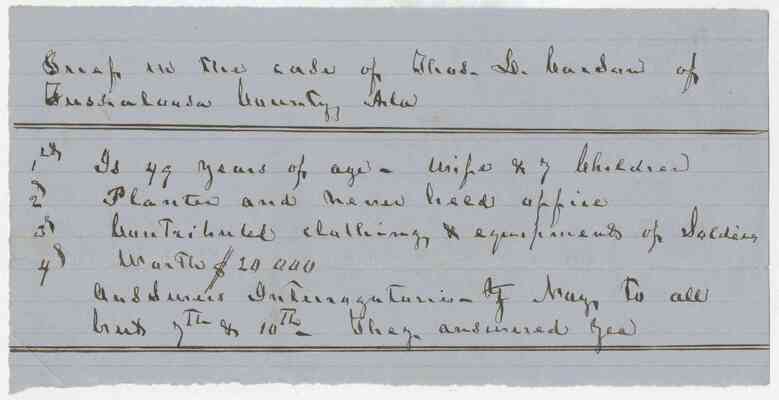 Brief in the case of Thos. L. Carson of
Tuskaloosa County, Ala
1st Is 49 years of age - wife & 7 Children
2d Planter and never held office
3d Contributed clothing, & equipments of Soldiers
4d Worth $20 000
Answers Interrogatories - Nay, to all
but 7th & 10th - They answered yea